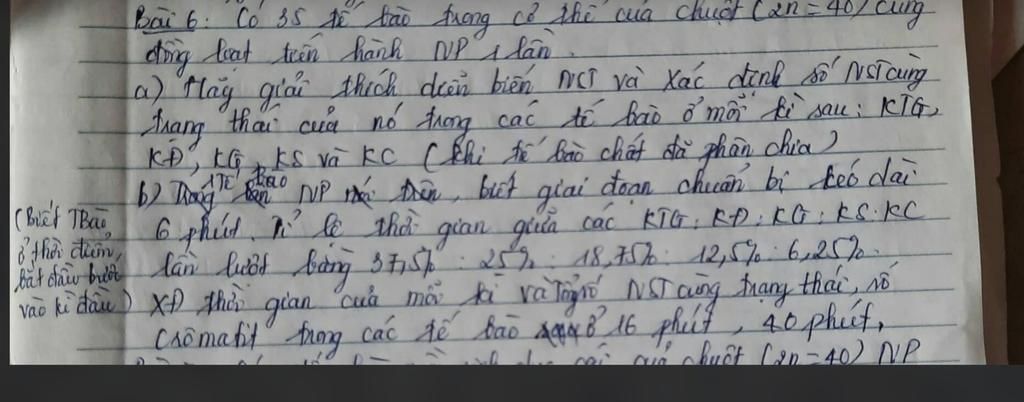 Bài 6: Có 35 tế bào trong cơ thể của chuột (2n = 40) cùng
đồng loạt tiến hành NP 1 lần.
a) Hãy giải thích diễn biến NST và xác định số NST cùng
trạng thái của nó trong các tế bào ở mỗi kì sau: KTG,
KĐ, KG, KS và KC (khi tế bào chất đã phân chia)
b) 1 tế bào NP trên, biết giai đoạn chuẩn bị kéo dài
6 phút. Tỉ lệ thời gian giữa các KTG : KĐ : KG : KS : KC
lần lượt bằng 37,5% : 25% : 18,75% : 12,5% : 6,25%.
(Biết TBào
ở thời điểm
bắt đầu bước
vào kì đầu)
XĐ thời gian của mỗi kì và Tổng số NST cùng trạng thái, số
Crômatit trong các tế bào ở 16 phút, 40 phút,
chuột (2n = 40) NP